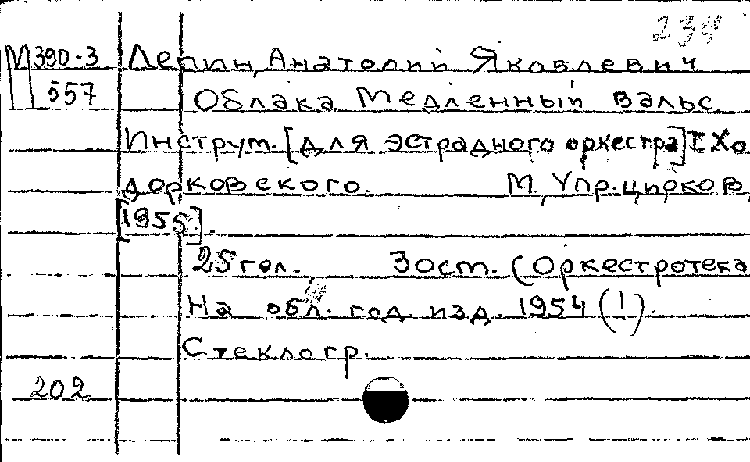 234
М390-3 Лепин, Анатолий Яковлевич
557 Облака Медленный вальс
Инструм. [для эстрадного оркестра] Г. Хо
дорковского. М., Упр. цирков,
[1955].
25 гол. 30 ст. (Оркестротека
На обл. год изд. 1954 (!).
Стеклогр.
202